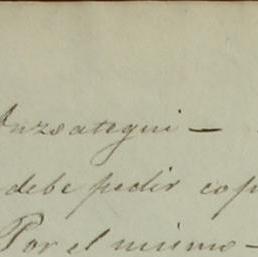 Anzoategui —
debe pedir cop
Por el mismo —